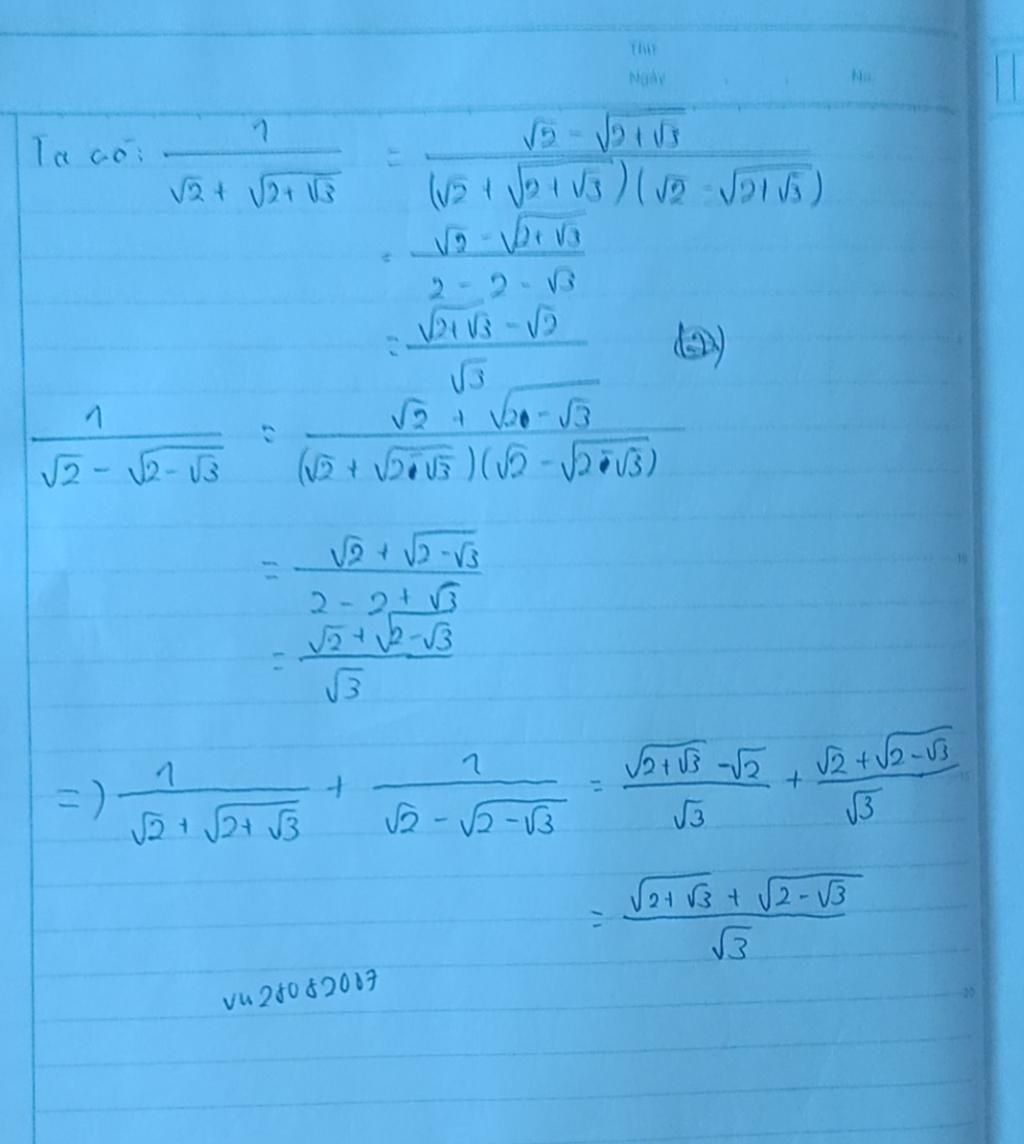 Thứ
Ngày . . No.
Ta có: 1/(√2 + √(2+√3)) = (√2 - √(2+√3))/((√2 + √(2+√3))(√2 - √(2+√3)))
= (√2 - √(2+√3))/(2 - 2 - √3)
= (√(2+√3) - √2)/√3
1/(√2 - √(2-√3)) = (√2 + √(2-√3))/((√2 + √(2-√3))(√2 - √(2-√3)))
= (√2 + √(2-√3))/(2 - 2 + √3)
= (√2 + √(2-√3))/√3
=) 1/(√2 + √(2+√3)) + 1/(√2 - √(2-√3)) = (√(2+√3) - √2)/√3 + (√2 + √(2-√3))/√3
= (√(2+√3) + √(2-√3))/√3
vu28082007